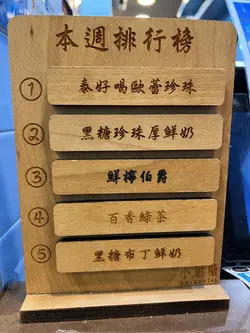 本週排行榜
① 泰好喝歐蕾珍珠
② 黑糖珍珠厚鮮奶
③ 鮮檸伯爵
④ 百香綠茶
⑤ 黑糖布丁鮮奶